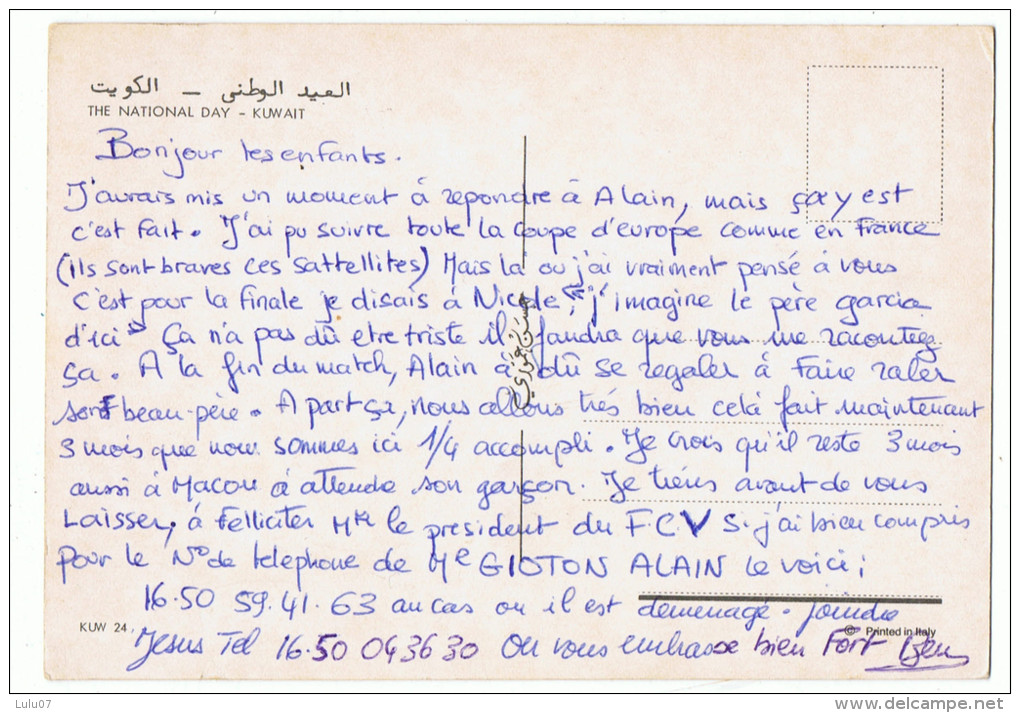 العيد الوطني – الكويت
THE NATIONAL DAY - KUWAIT
Bonjour les enfants.
J'aurais mis un moment à repondre à Alain, mais ça y est
c'est fait. J'ai pu suivre toute la coupe d'europe comme en France
(ils sont braves ces sattellites) Mais là ou j'ai vraiment pensé à vous
c'est pour la finale je disais à Nicole, "j'imagine le père garcia
d'ici" Ça n'a pas dû etre triste il faudra que vous me racontiez
ça. A la fin du match, Alain à dû se regaler à Faire raler
son beau-père. A part ça, nous allons trés bien celà fait maintenant
3 mois que nous sommes ici 1/4 accompli. Je crois qu'il reste 3 mois
aussi à Macou à attendre son garçon. Je tiens avant de vous
Laisser, à Felliciter Mr le president du F.C.V S. j'ai bien compris
pour le N° de telephone de Me GIOTON ALAIN le voici;
16.50 59.41.63 au cas ou il est demenagé. joindre
KUW 24
© Printed in Italy
Jesus Tel 16.50 04 36 30 On vous embrasse bien Fort
Lulu07
http://www.delcampe.net